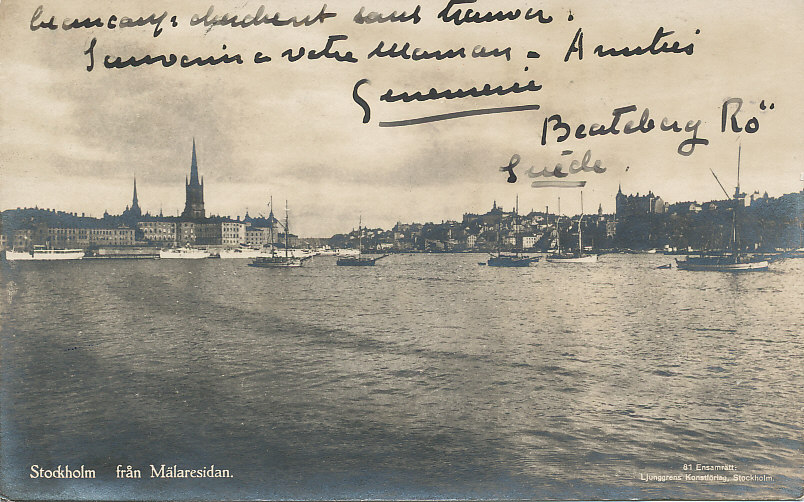 beaucoup cherchent sans trouver.
Souvenir a votre Maman - Amitiés
Genemerie
Beateberg Rö
Suède.
Stockholm från Mälaresidan.
81 Ensamrätt:
Ljunggrens Konstförlag, Stockholm.